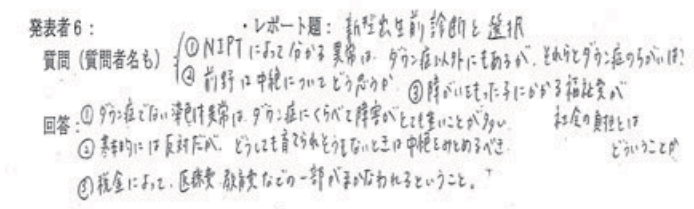 発表者6： ・レポート題：新型出生前診断と選択
質問（質問者名も）：①NIPTによって分かる異常は、ダウン症以外にもあるが、それらとダウン症のちがいは？
②前野は中絶についてどう思うか ③障がいをもった子にかかる福祉費が
社会の負担とは
どういうことか
回答：①ダウン症でない染色体異常は、ダウン症にくらべて障害がとても重いことが多い
②基本的には反対だが、どうしても育てられそうもないときは中絶をみとめるべき
③税金によって、医療費、教育費などの一部がまかなわれるということ。